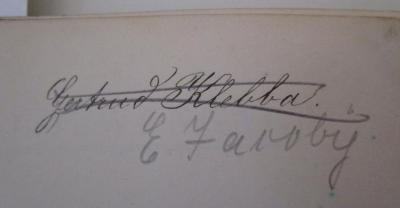 Gertrud Klebba.
E. Jacoby.